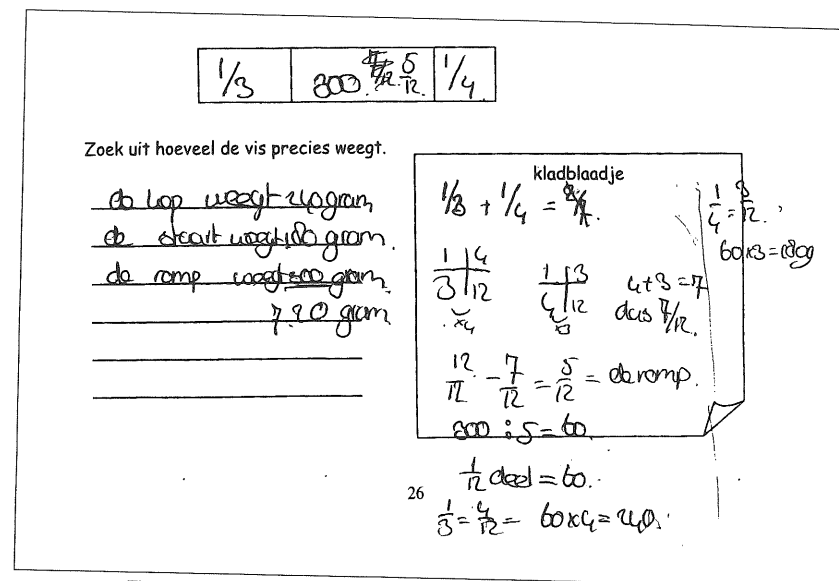 1/3 300. 5/12. 1/4
Zoek uit hoeveel de vis precies weegt.
de kop weegt 240 gram
de staart weegt 180 gram.
de romp weegt 300 gram.
720 gram
kladblaadje
1/3 + 1/4 =
1 | 4
3 | 12
x4
1 | 3
4 | 12
x3
4+3=7
dus 7/12.
12/12 - 7/12 = 5/12 = de romp.
300 : 5 = 60.
1/12 deel = 60.
1/3 = 4/12 = 60x4 = 240.
1/4 = 3/12.
60x3=180g
26